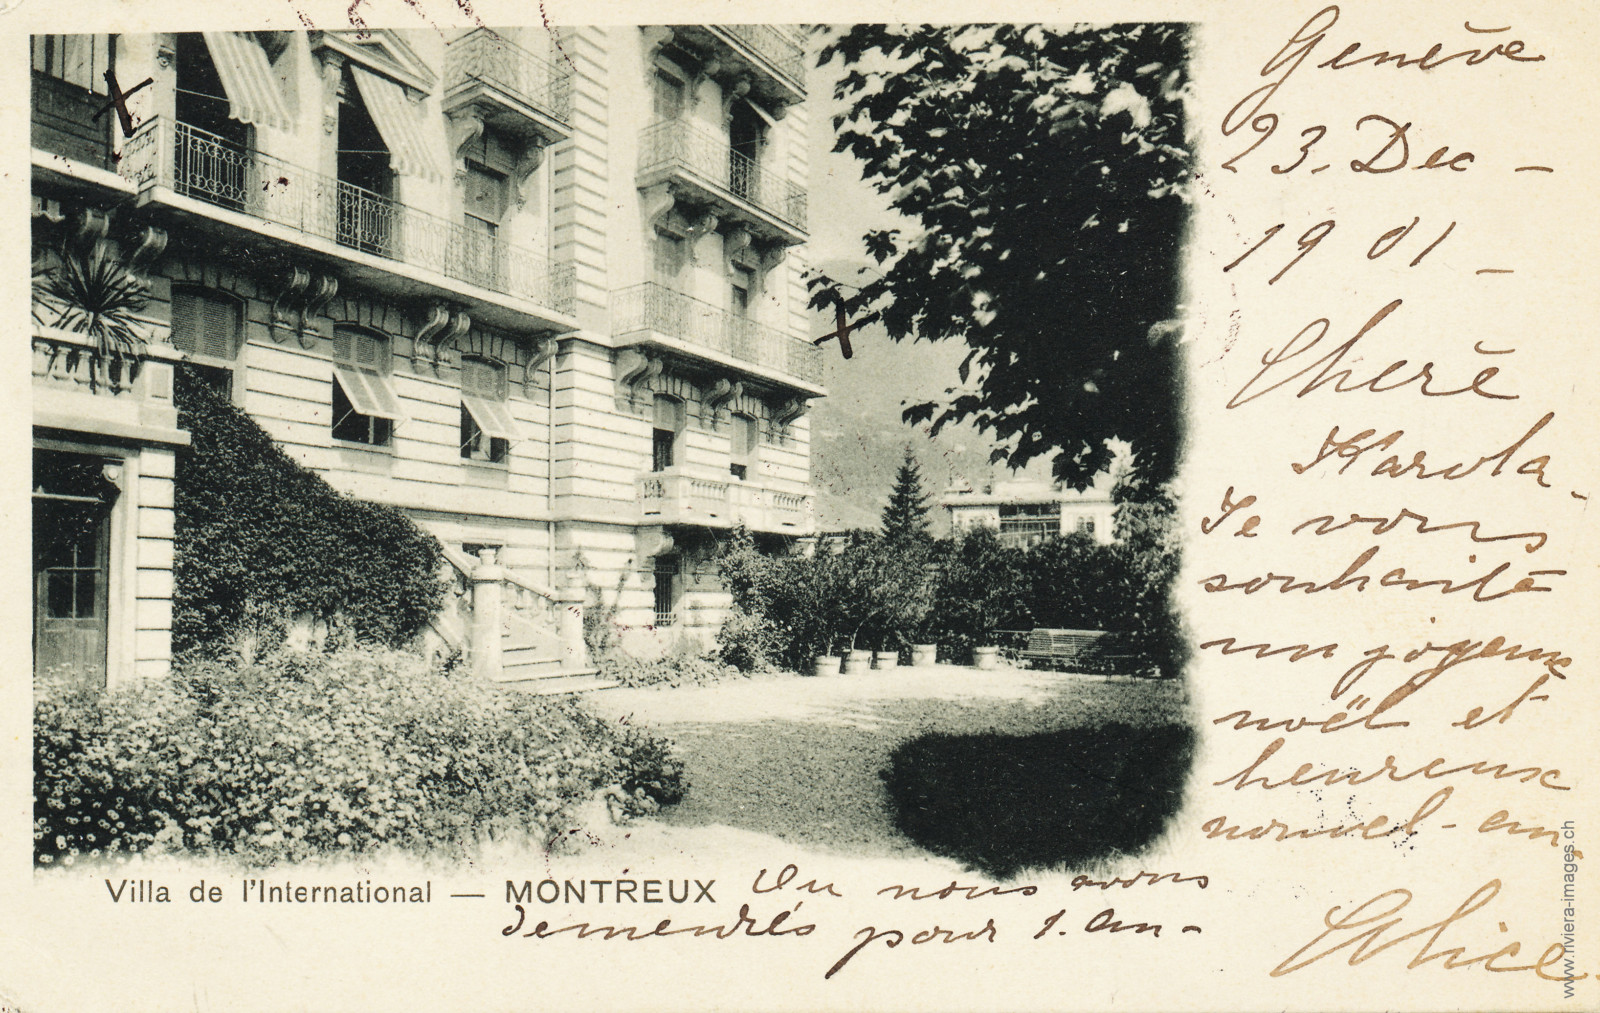 Genève
23. Dec –
1901 –
Chère
Karola.
Je vous
souhaite
un joyeux
noël et
heureux
nouvel-an
Alice.
Villa de l'International — MONTREUX
Ou nous avons
demeurés pour 1. an-
www.riviera-images.ch